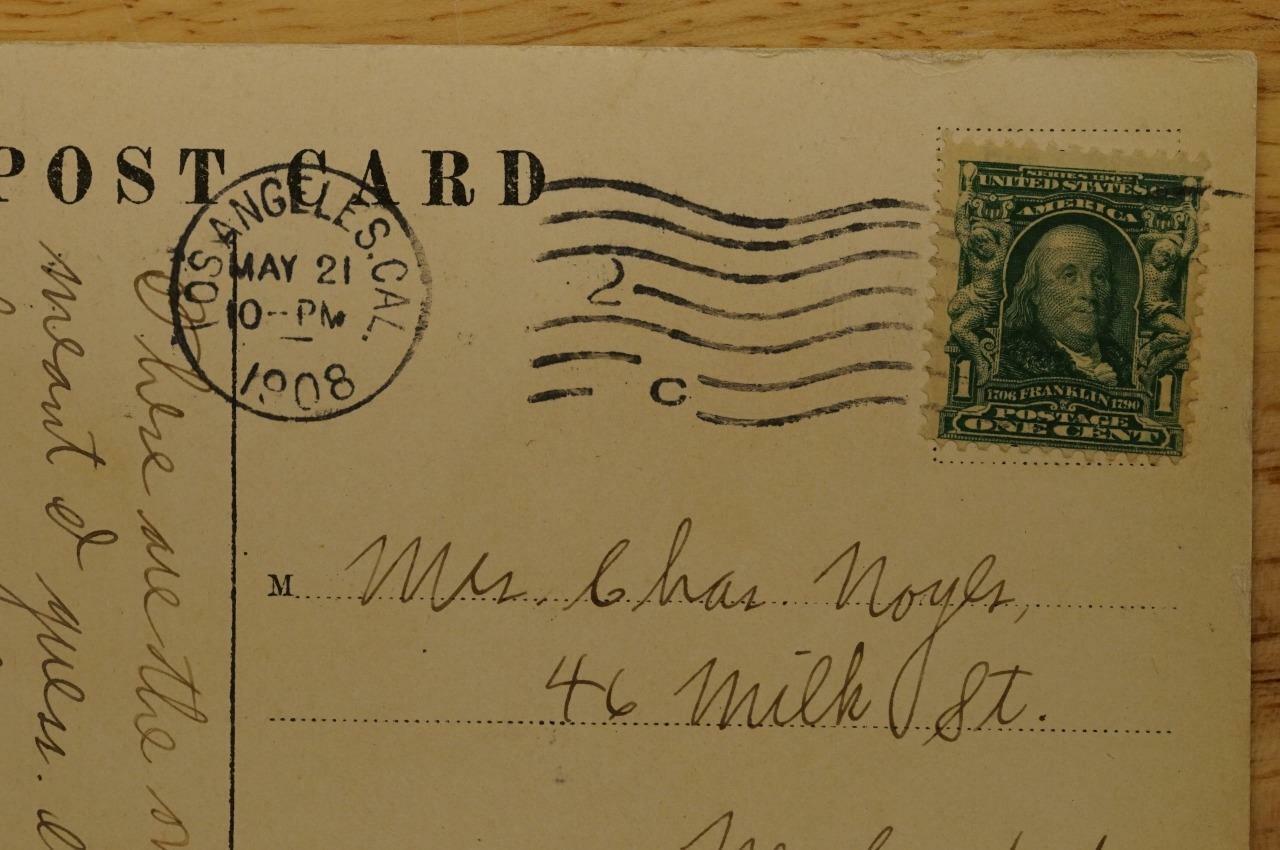 POST CARD
LOS ANGELES, CAL.
MAY 21
10--PM
1908
2
C
SERIES 1902
UNITED STATES OF
AMERICA
1 1
1706 FRANKLIN 1790
POSTAGE
ONE CENT
M Mrs. Chas. Noyes,
46 Milk St.
here are the
meant I guess.